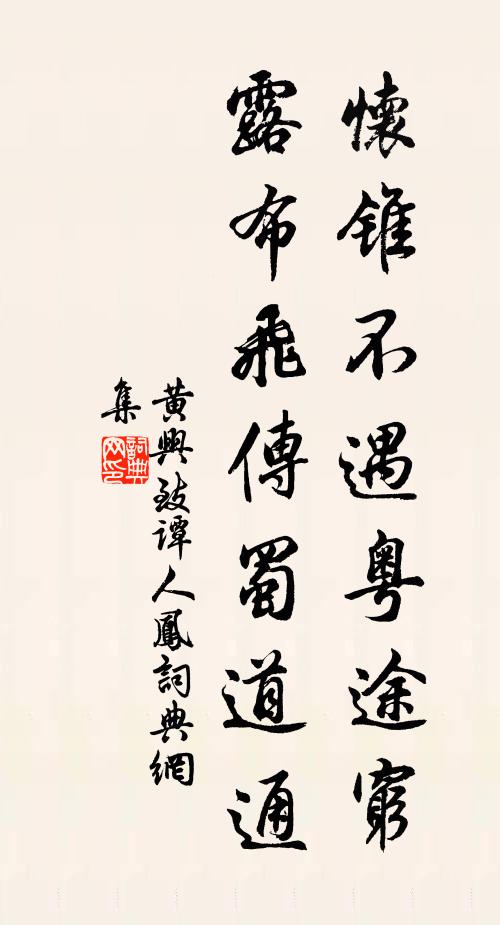 懷錐不遇粵途窮
露布飛傳蜀道通
黃興致譚人鳳詞典網
集
詞典網印